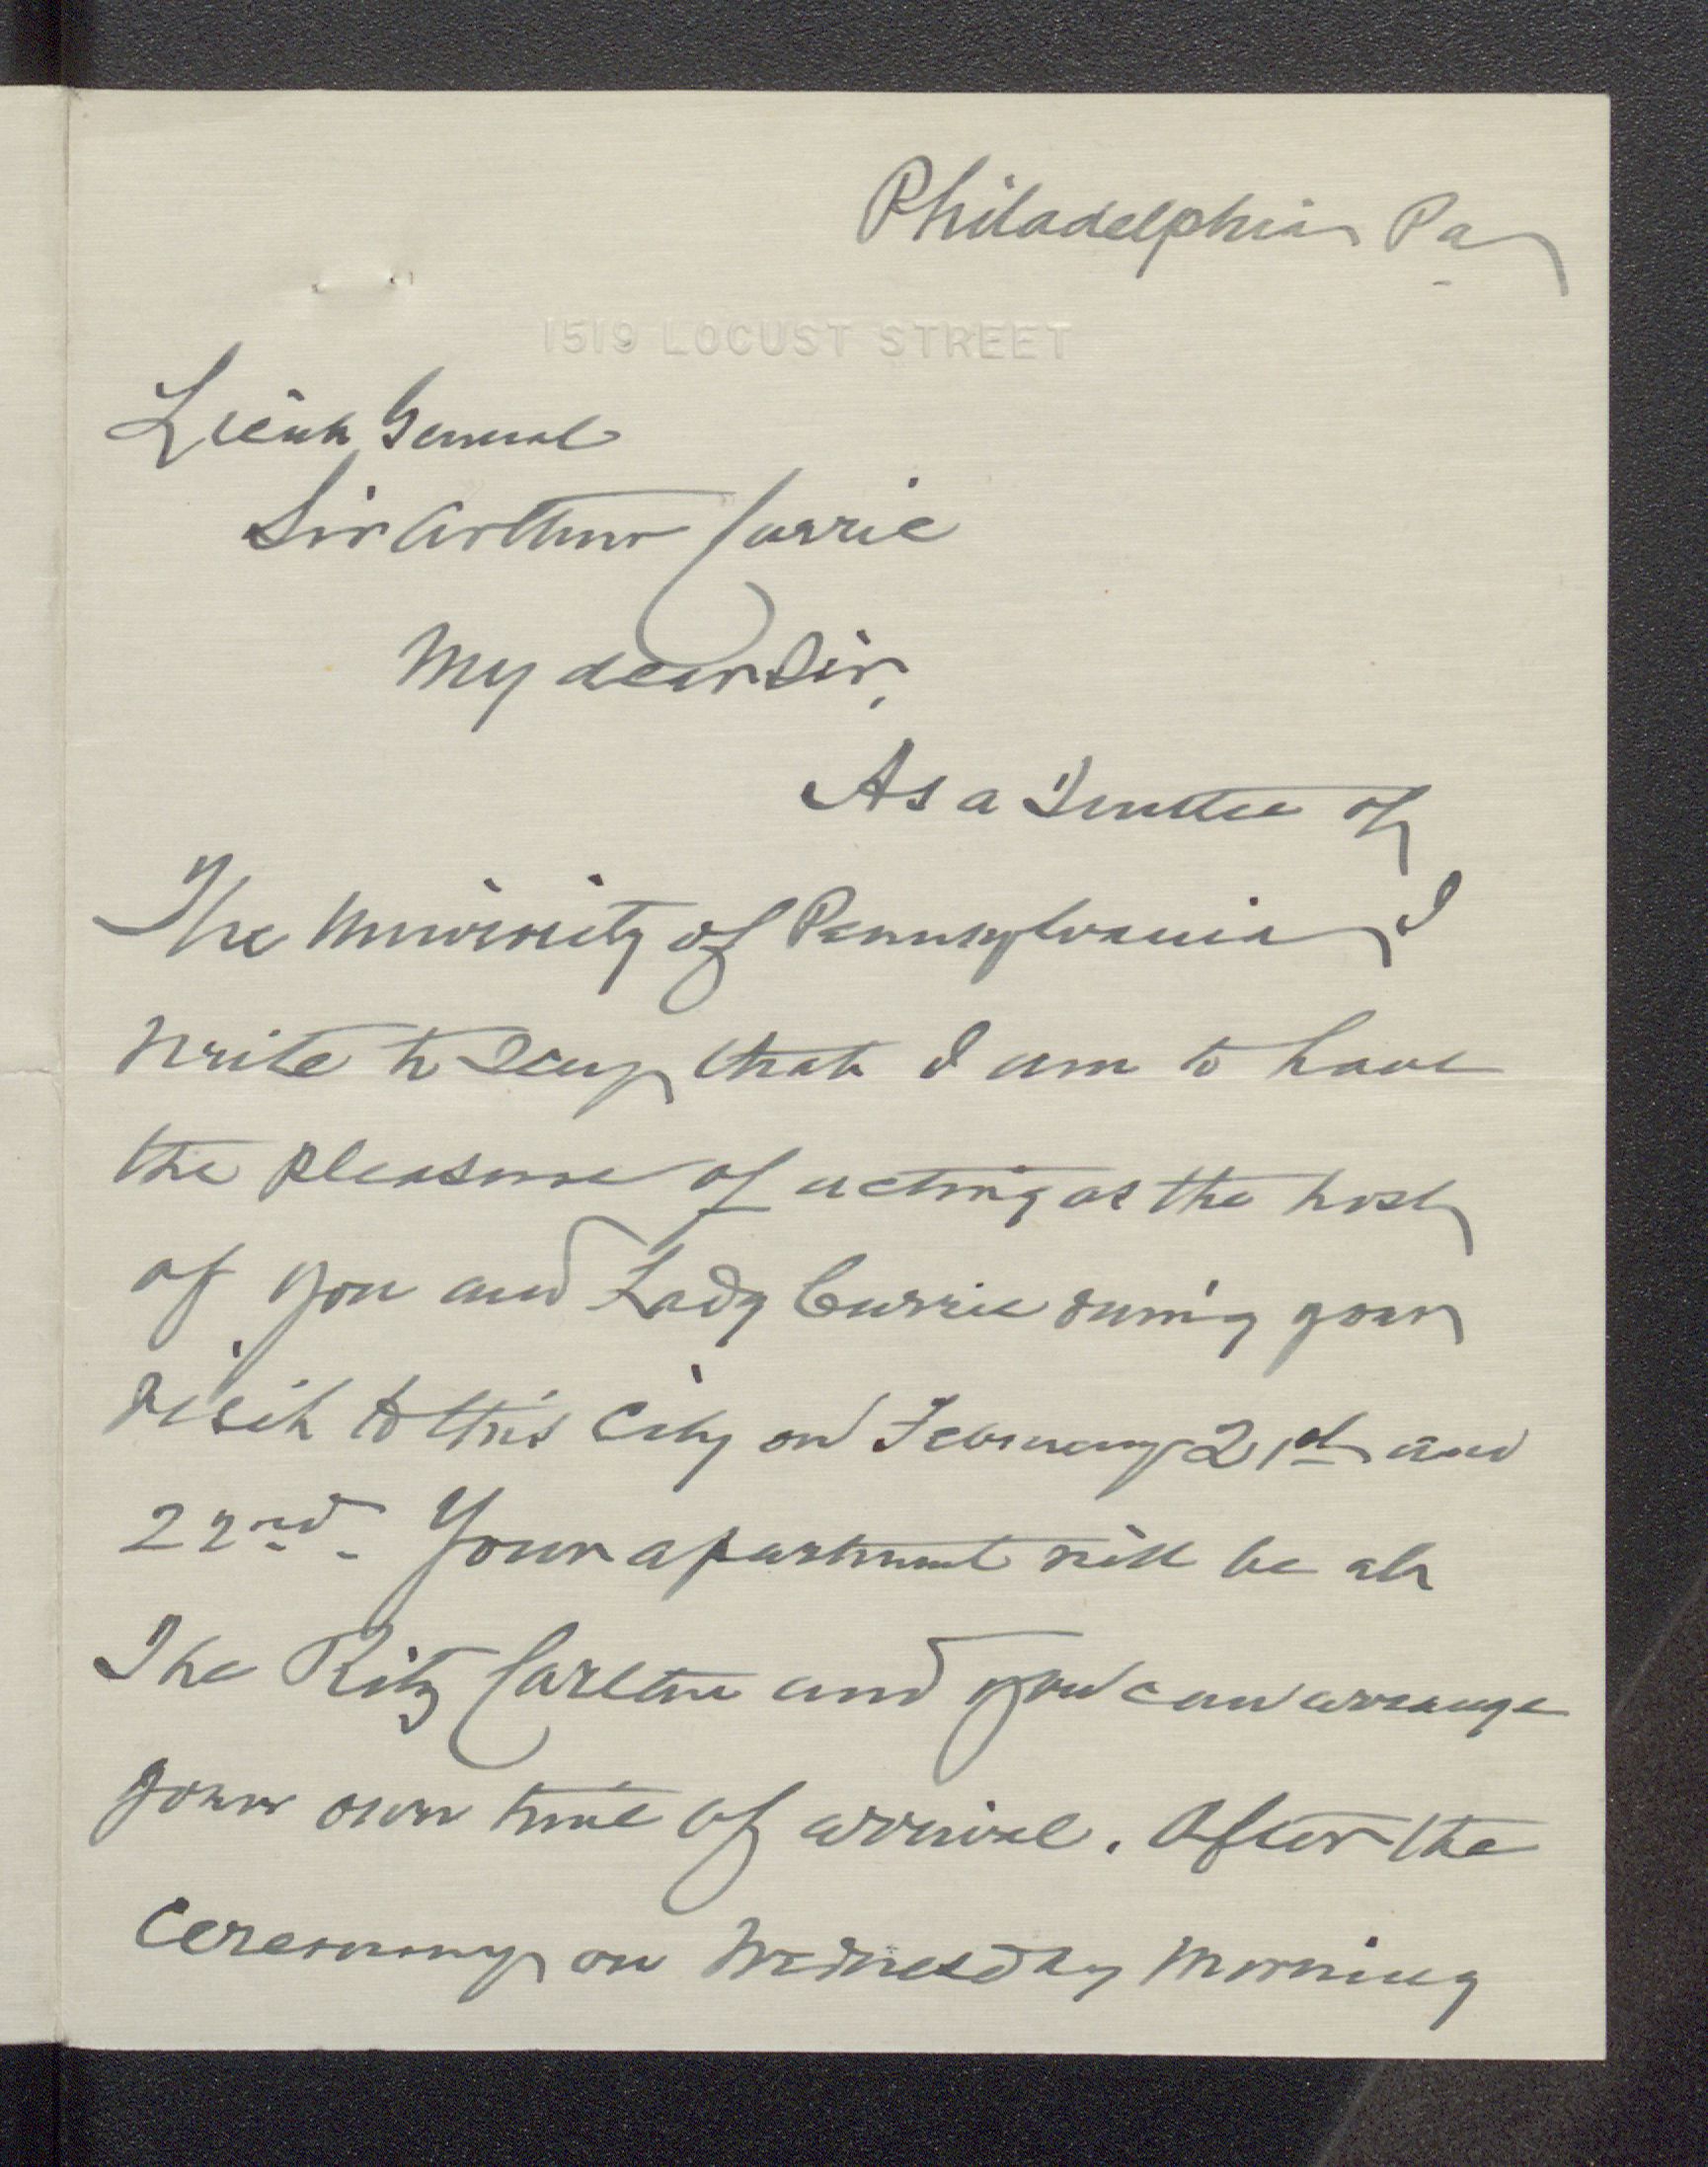 Philadelphia Pa
1519 LOCUST STREET
Lieut General
Sir Arthur Currie
My dear Sir,
As a Trustee of
The University of Pennsylvania I
write to say that I am to have
the pleasure of acting as the host
of you and Lady Currie during your
visit to this City on February 21st and
22nd. Your apartment will be at
The Ritz Carlton and you can arrange
your own time of arrival. After the
Ceremony on Wednesday Morning